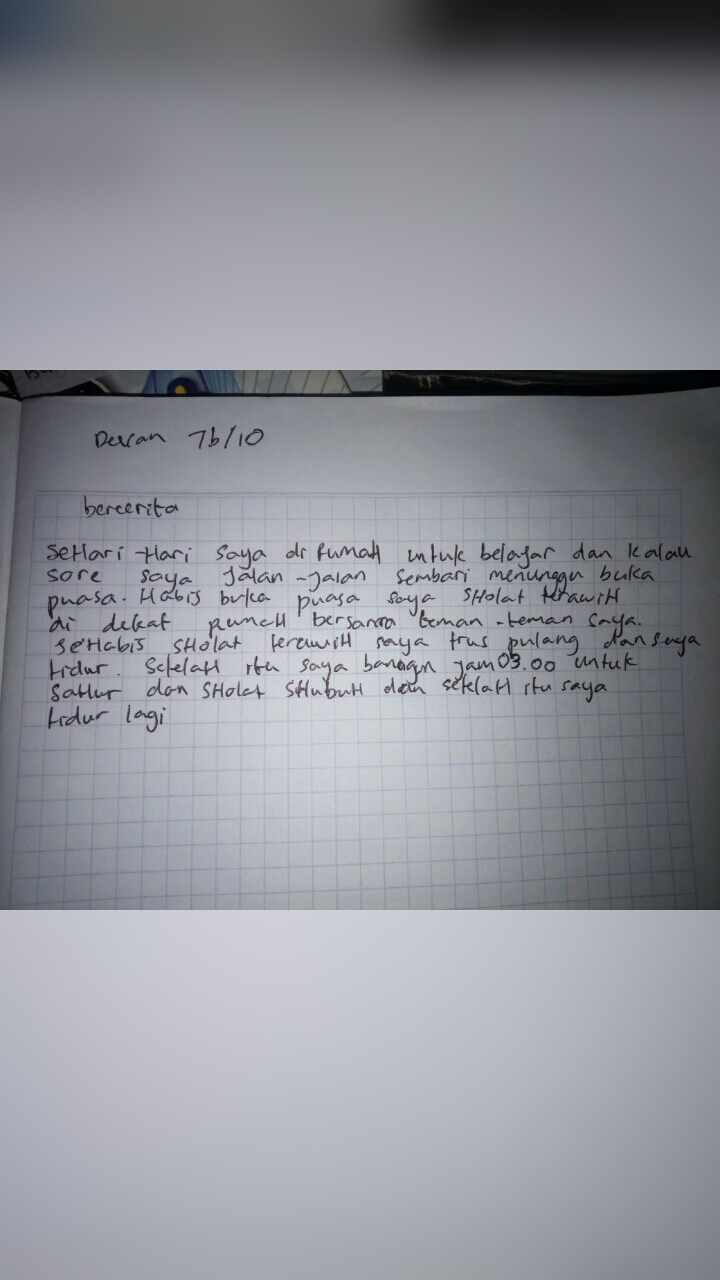 Devan 7b/10
bercerita
seHari-Hari saya di rumaH untuk belajar dan kalau
sore saya Jalan-jalan sembari menunggu buka
puasa. Habis buka puasa saya SHolat terawiH
di dekat rumaH bersama teman-teman saya.
seHabis sHolat terawiH saya trus pulang dan saya
tidur. SetelaH itu saya bangun jam 03.00 untuk
SaHur dan SHolat SHubuH dan seklaH itu saya
tidur lagi